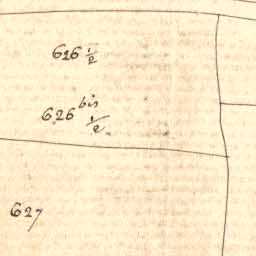 616 1/2
626 bis 1/2
627